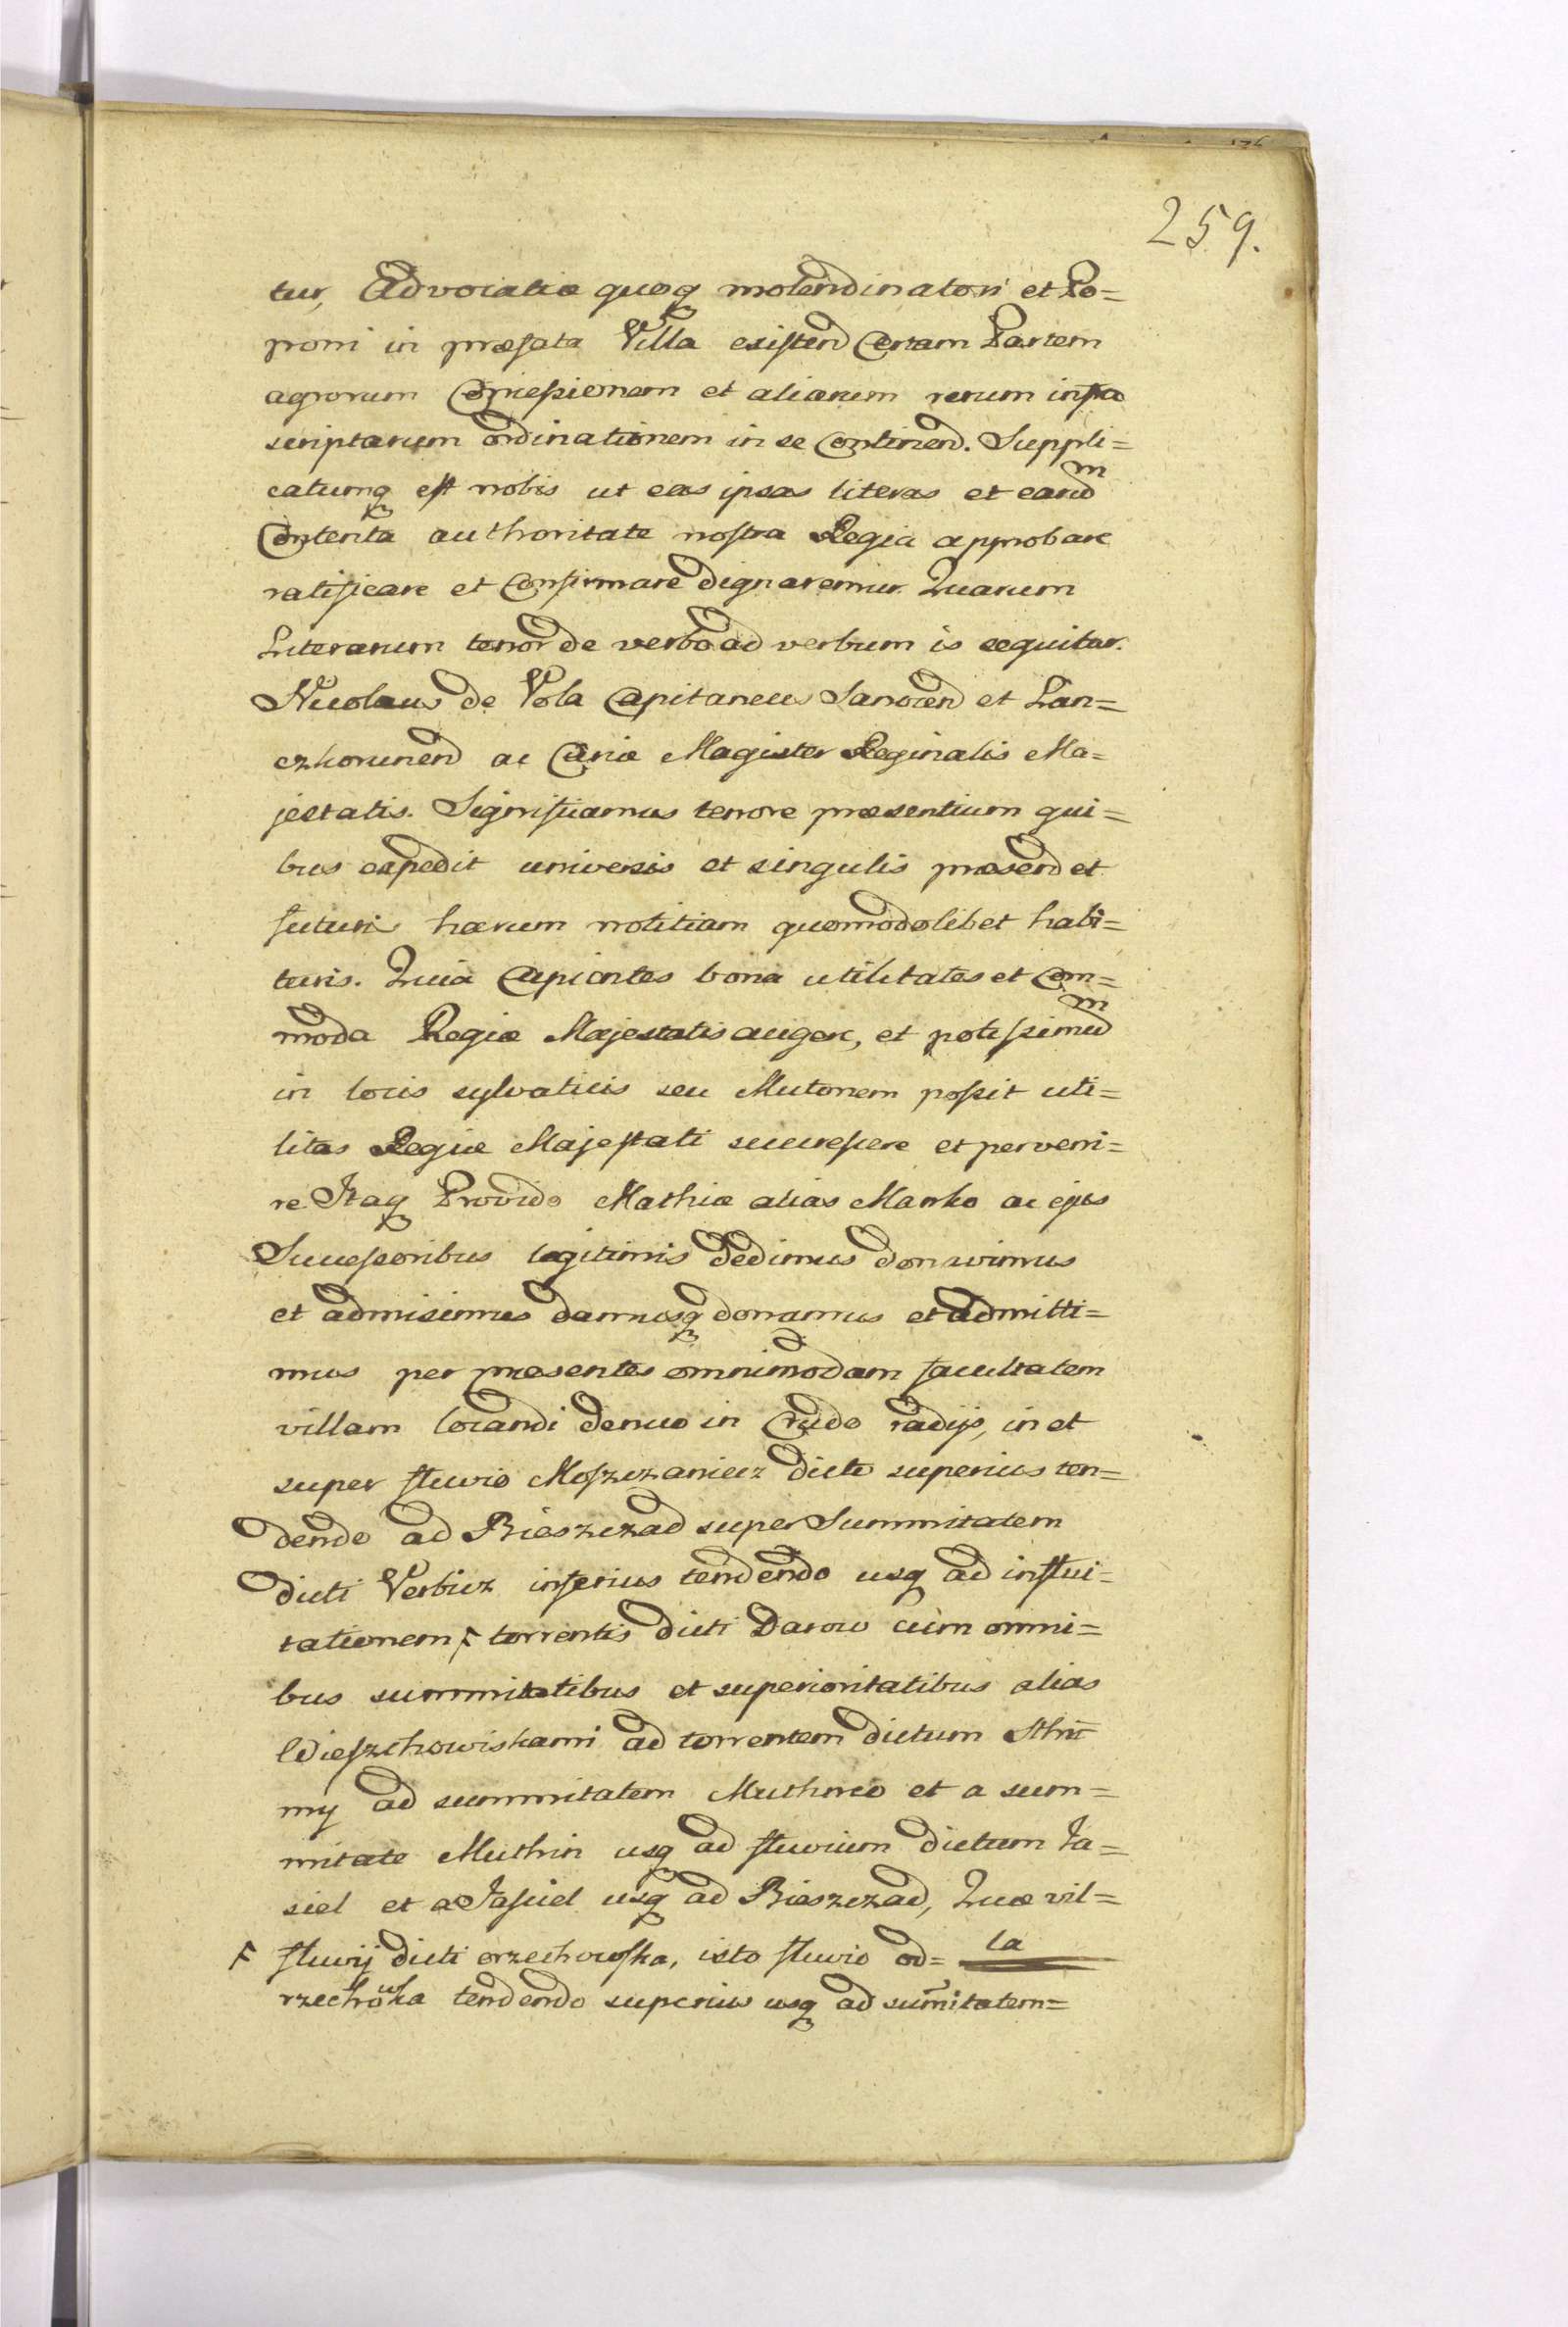 259.
tur, Advocatiæ quoq molendinatori et Po=
poni in præfata Villa existend Certam Partem
agrorum Concessionem et aliarum rerum infra
scriptarum ordinationem in se Continend. Suppli=
catumq est nobis ut eas ipsas literas et earud m
Contenta authoritate nostra Regia approbare
ratificare et Confirmare dignaremur. Quarum
Literarum tenor de verbo ad verbum is sequitur.
Nicolaus de Vola Capitaneus Sanocen et Lan=
czkorunend ac Curiæ Magister Reginalis Ma=
jestatis. Significamus tenore præsentium qui=
bus expedit universis et singulis præsend et
futuris harum notitiam quomodolibet habi=
turis. Quia Cupientes bona utilitates et Com=
moda Regiæ Majestatis augere, et potissimu m
in locis sylvaticis seu Mutonem possit uti=
litas Regiæ Majestati succrescere et perveni=
re Itaq Provido Mathiæ alias Manko ac ejus
Successoribus legitimis dedimus donavimus
et admisimus damusq donamus et admitti=
mus per præsentes omnimodam facultatem
villam locandi denuo in Crudo radijs, in et
super fluvio Moszczaniecz dicto superius ten=
dendo ad Bieszczad super Summitatem
dicti Verbicz inferius tendendo usq ad influi=
tationem F torrentis dicti Darow cum omni=
bus summitatibus et superioritatibus alias
Wieszchowiskami ad torrentem dictum Sthu
my ad summitatem Muthneo et a sum=
mitate Muthin usq ad fluvium dictum Ja=
siel et a Jasiel usq ad Bieszczad, Quæ vil=
la
F fluvij dicti orzechowska, isto fluvio od=
rzechowka tendendo superius usq ad sumitatem=